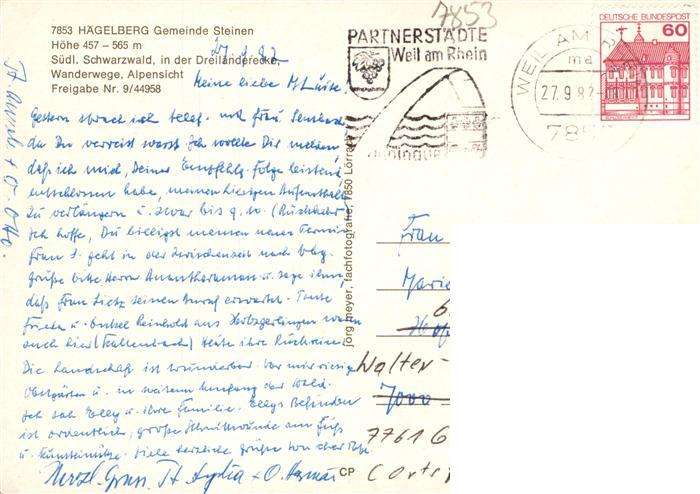 7853 HÄGELBERG Gemeinde Steinen
Höhe 457 – 565 m
Südl. Schwarzwald, in der Dreiländerecke,
Wanderwege, Alpensicht
Freigabe Nr. 9/44958
7853
PARTNERSTÄDTE
Weil am Rhein
WEIL AM
27.9.82
DEUTSCHE BUNDESPOST
60
Meine liebe M.Luise.
Gestern sprach ich telef. mit Frau
da Du verreist warst. Ich wollte Dir melden,
daß ich mich, Deiner Empfehlg. Folge leistend
entschlossen habe, meinen hiesigen Aufenthalt
zu verlängern u. zwar bis 9.10. (Rückkehr)
Ich hoffe, Du billigst meinen neuen Termin
Frau S. geht in der Zwischenzeit nach
Grüße bitte Herrn u. sage ihm,
daß Frau Lietz seinen Anruf erwartet. Tante
Frieda u. Onkel Reinhold aus Herbzgerlingen waren
auch hier (Kaltenbach) Heute ihre
Die Landschaft ist wunderbar. Vor mir riesige
Obstgärten u. in weitem Umfang der Wald.
Ich sah Elly u. ihre Familie. Ellys Befinden
ist ordentlich, große Schnittwunde am Fuß
u. Viele herzliche Grüße von
Herzl. Gruss, Tt Lydia + O.
jörg meyer, fachfotografie, 7850 Lörrach
CP
Frau
Marie
Walter-
7761 G